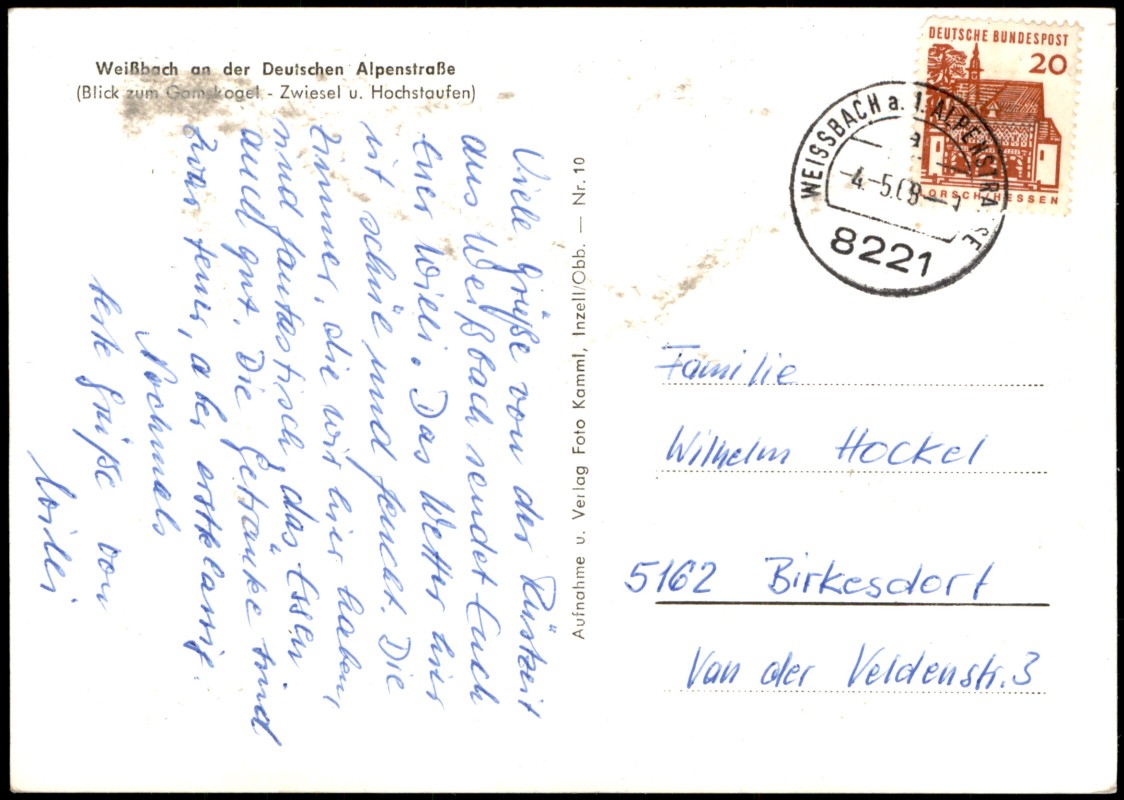 Weißbach an der Deutschen Alpenstraße
(Blick zum Gamskogel - Zwiesel u. Hochstaufen)
Viele Grüße von der Rüstzeit
aus Weißbach sendet Euch
Euer Willi. Das Wetter hier
ist schön und feucht. Die
Zimmer, die wir hier haben,
sind fantastisch, das Essen
auch gut. Die Getränke sind
zwar teuer, aber erstklassig.
Nochmals
Grüße von
Willi
Aufnahme u. Verlag Foto Kamml, Inzell/Obb. — Nr. 10
DEUTSCHE BUNDESPOST
20
LORSCH/HESSEN
WEISSBACH a. d. ALPENSTRASSE
a
-4.-5.69-
8221
Familie
Wilhelm Hockel
5162 Birkesdorf
Van der Veldenstr. 3